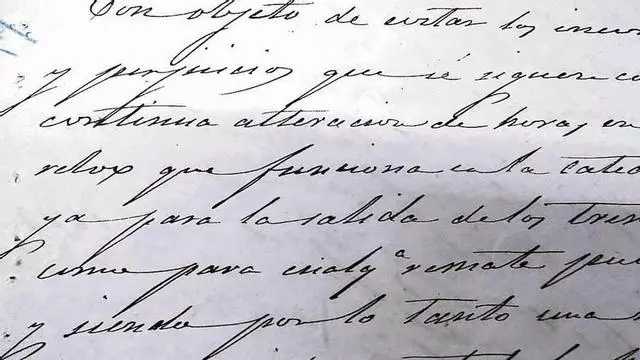 Con objeto de evitar los incon
y perjuicios que se siguen co
continua alteracion de horas en
relox que funciona en la cated
ya para la salida de los tren
como para cualqª remate pu
y siendo por lo tanto una